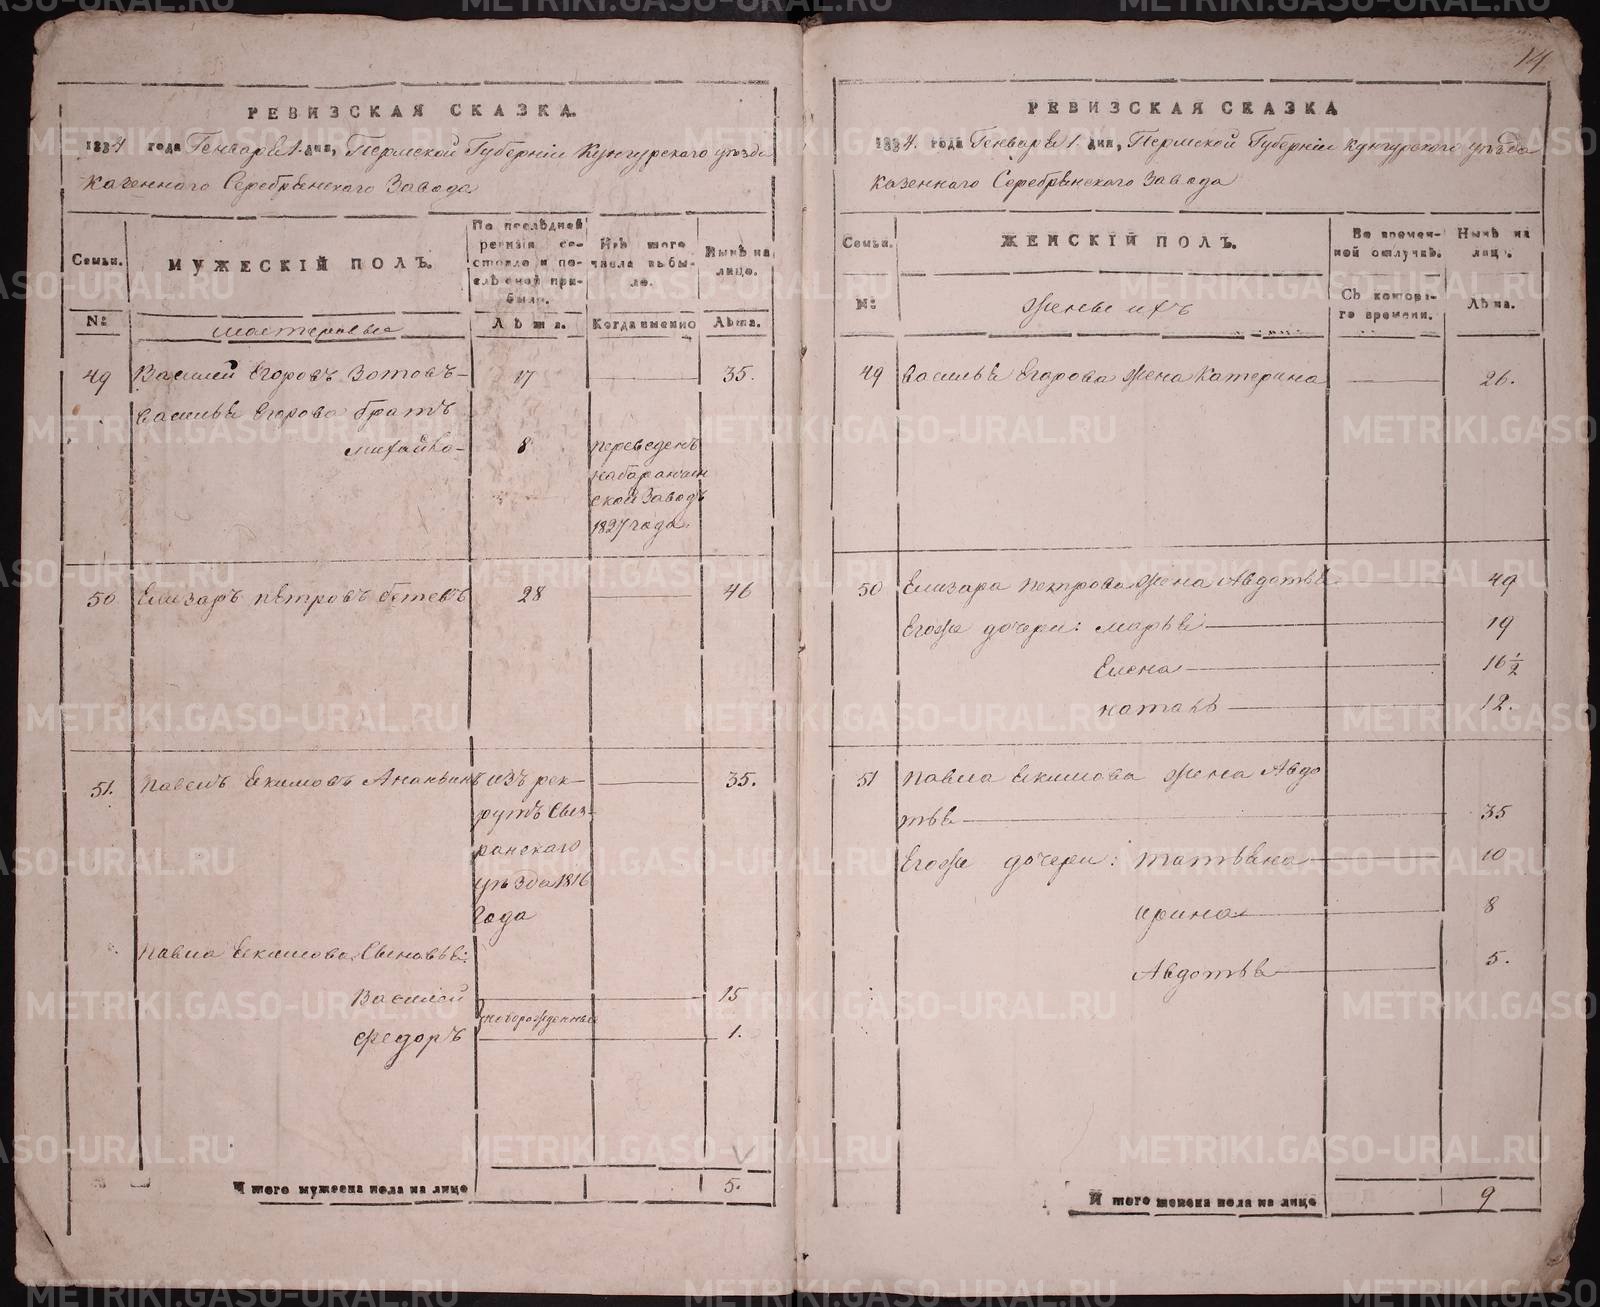 14
РЕВИЗСКАЯ СКАЗКА.
1834 года Генваря 1 дня, Пермской Губернiи Кунгурского уѣзда
казенного Серебрянского Завода
Семьи.
МУЖЕСКIЙ ПОЛЪ.
По послѣдней
ревизiи со-
стояло и по-
слѣ оной при-
было.
Изъ того
числа выбы-
ло.
Нынѣ на
лицо.
№:
мастеровые
Лѣта.
Когда именно
Лѣта.
49 Василей Егоровъ Зотовъ 17 35.
Васильѣ Егорова братъ
михайло 8 переведенъ
на баранчин
ской Заводъ
1827 года
50 Елизаръ петровъ 28 46
51. Павелъ Екимовъ Ананьинъ изъ рек- 35.
рутъ Сыз-
ранского
уѣзда 1816
года
Павла Екимова Сыновьѣ:
Василей 15
новорожденные
Федоръ 1.
Итого мужеска пола на лицо 5.
РЕВИЗСКАЯ СКАЗКА
1834 года Генваря 1 дня, Пермской Губернiи Кунгурского уѣзда
казенного Серебрянского Завода
Семьи.
ЖЕНСКIЙ ПОЛЪ.
Во времен-
ной отлучкѣ.
Нынѣ на
лицо.
№:
Жены ихъ
Съ которо-
го времени.
Лѣта.
49 Васильѣ Егорова жена Катерина 26.
50 Елизара Петрова жена Авдотьѣ 49
Егожъ дочери: марьѣ 19
Елена 16 1/2
наталь 12.
51 Павла Екимова жена Авдо
тьѣ 35
Егожъ дочери: татьѣна 10
ирина 8
Авдотьѣ 5.
Итого женска пола на лицо 9
METRIKI.GASO-URAL.RU